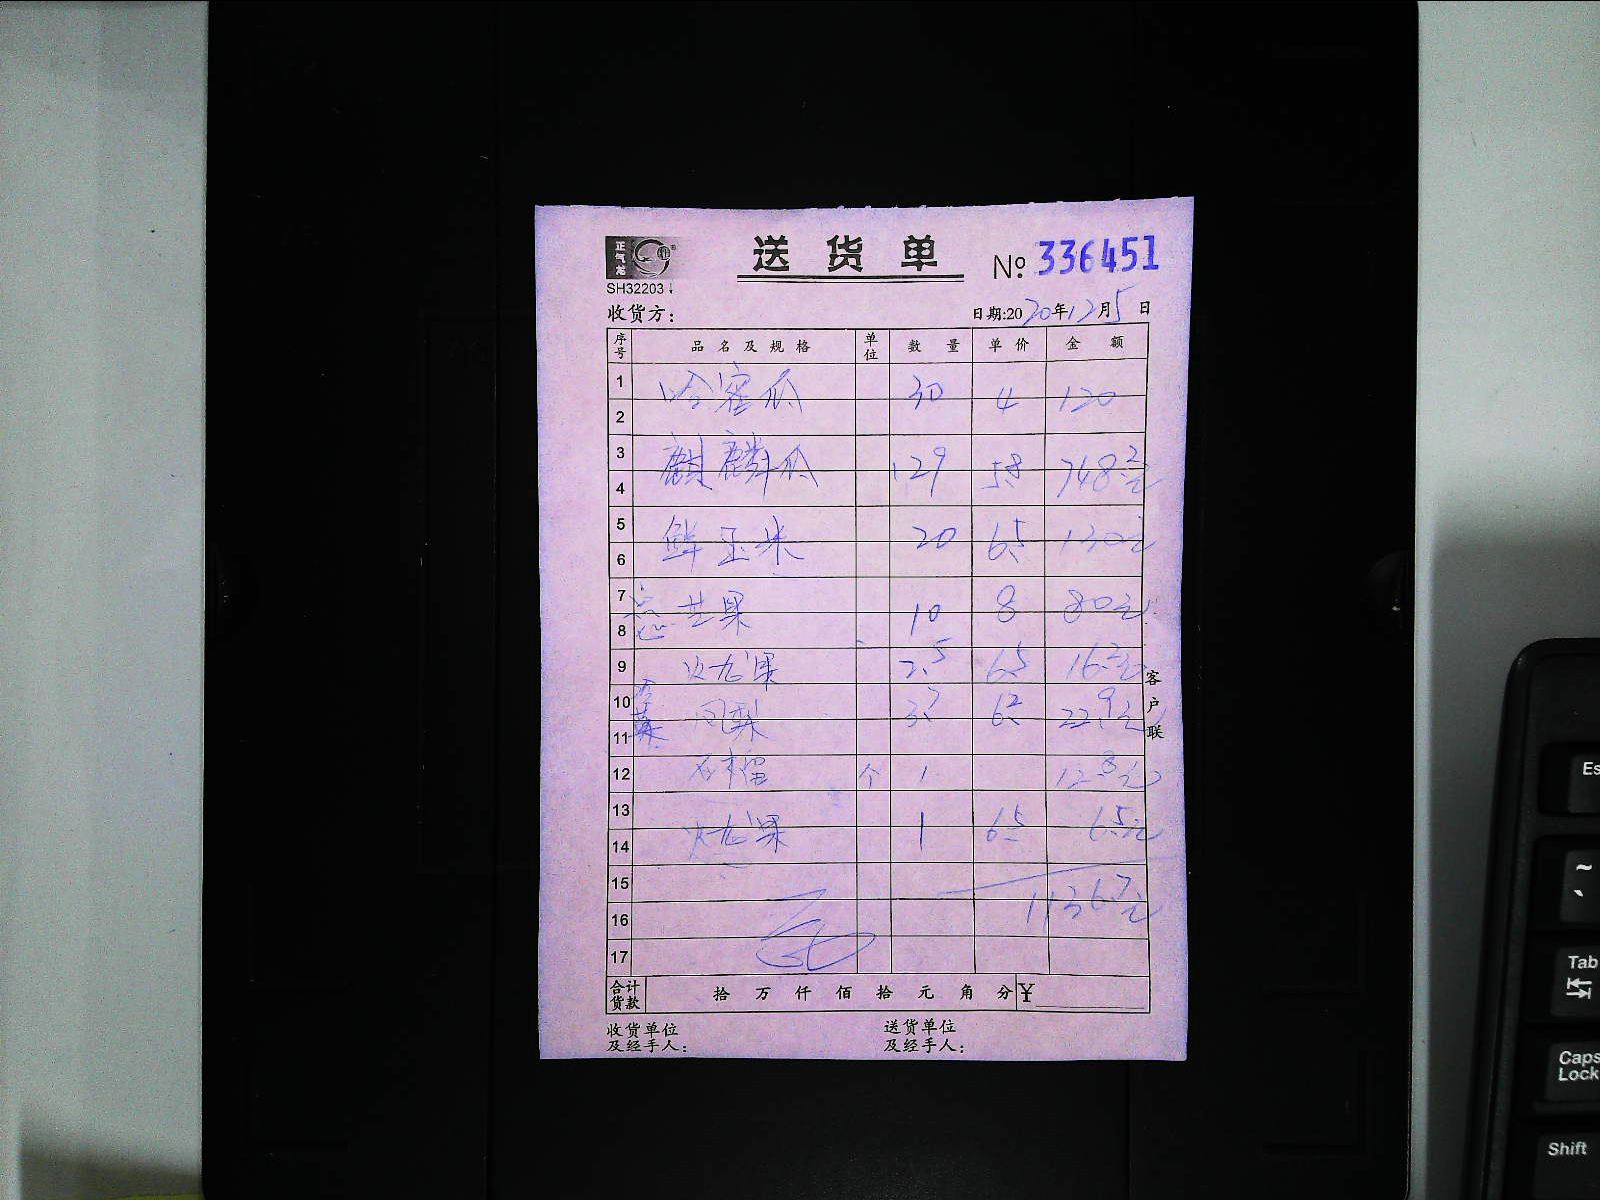 正气龙
SH32203
送货单
№ 336451
收货方：
日期:2020年12月5日
序号 品名及规格 单位 数量 单价 金额
1
哈密瓜 30 4 120
2
3
麒麟瓜 129 5.8 748.2元
4
5
鲜玉米 20 6.5 130元
6
7
点心 芒果 10 8 80元
8
9 火龙果 2.5 6.5 16.3元
10
凤梨 3.7 6.2 22.9元
11
12 石榴 个 1 12.8元
13
火龙果 1 6.5 6.5元
14
15
1136.7元
16
17
合计货款 拾 万 仟 佰 拾 元 角 分 ¥
客户联
收货单位
及经手人：
送货单位
及经手人：
Es
~
`
Tab
Caps
Lock
Shift